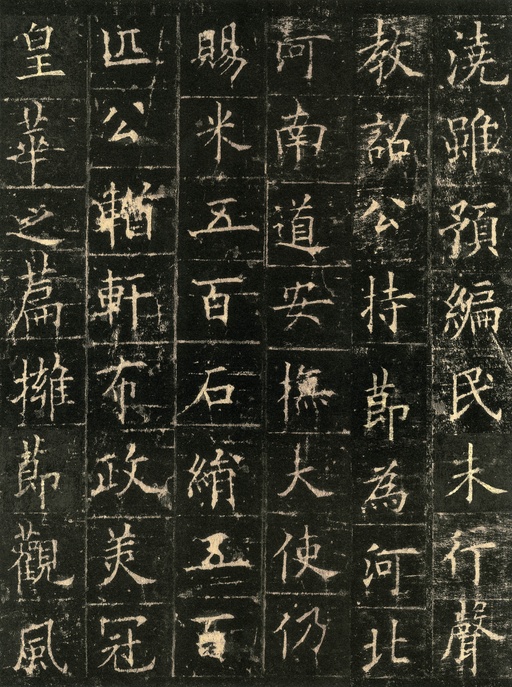 澆雖預編民未行聲
教詔公持莭為河北
河南道安撫大使仍
賜米五百石絹五百
匹公輶軒布政美冠
皇華之篇擁莭觀風